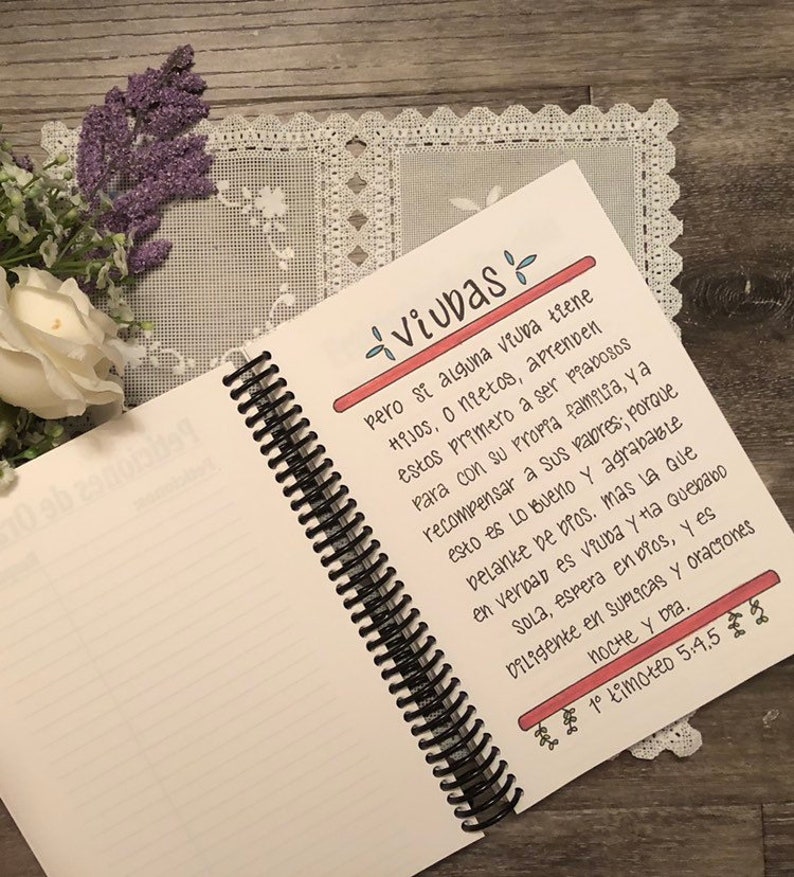 VIUDAS
Pero si alguna viuda tiene
hijos, o nietos, aprenden
estos primero a ser piadosos
para con su propia familia, y a
recompensar a sus padres; porque
esto es lo bueno y agradable
delante de Dios. mas la que
en verdad es viuda y ha quedado
sola, espera en Dios, y es
diligente en suplicas y oraciones
noche y dia.
1º timoteo 5:4,5